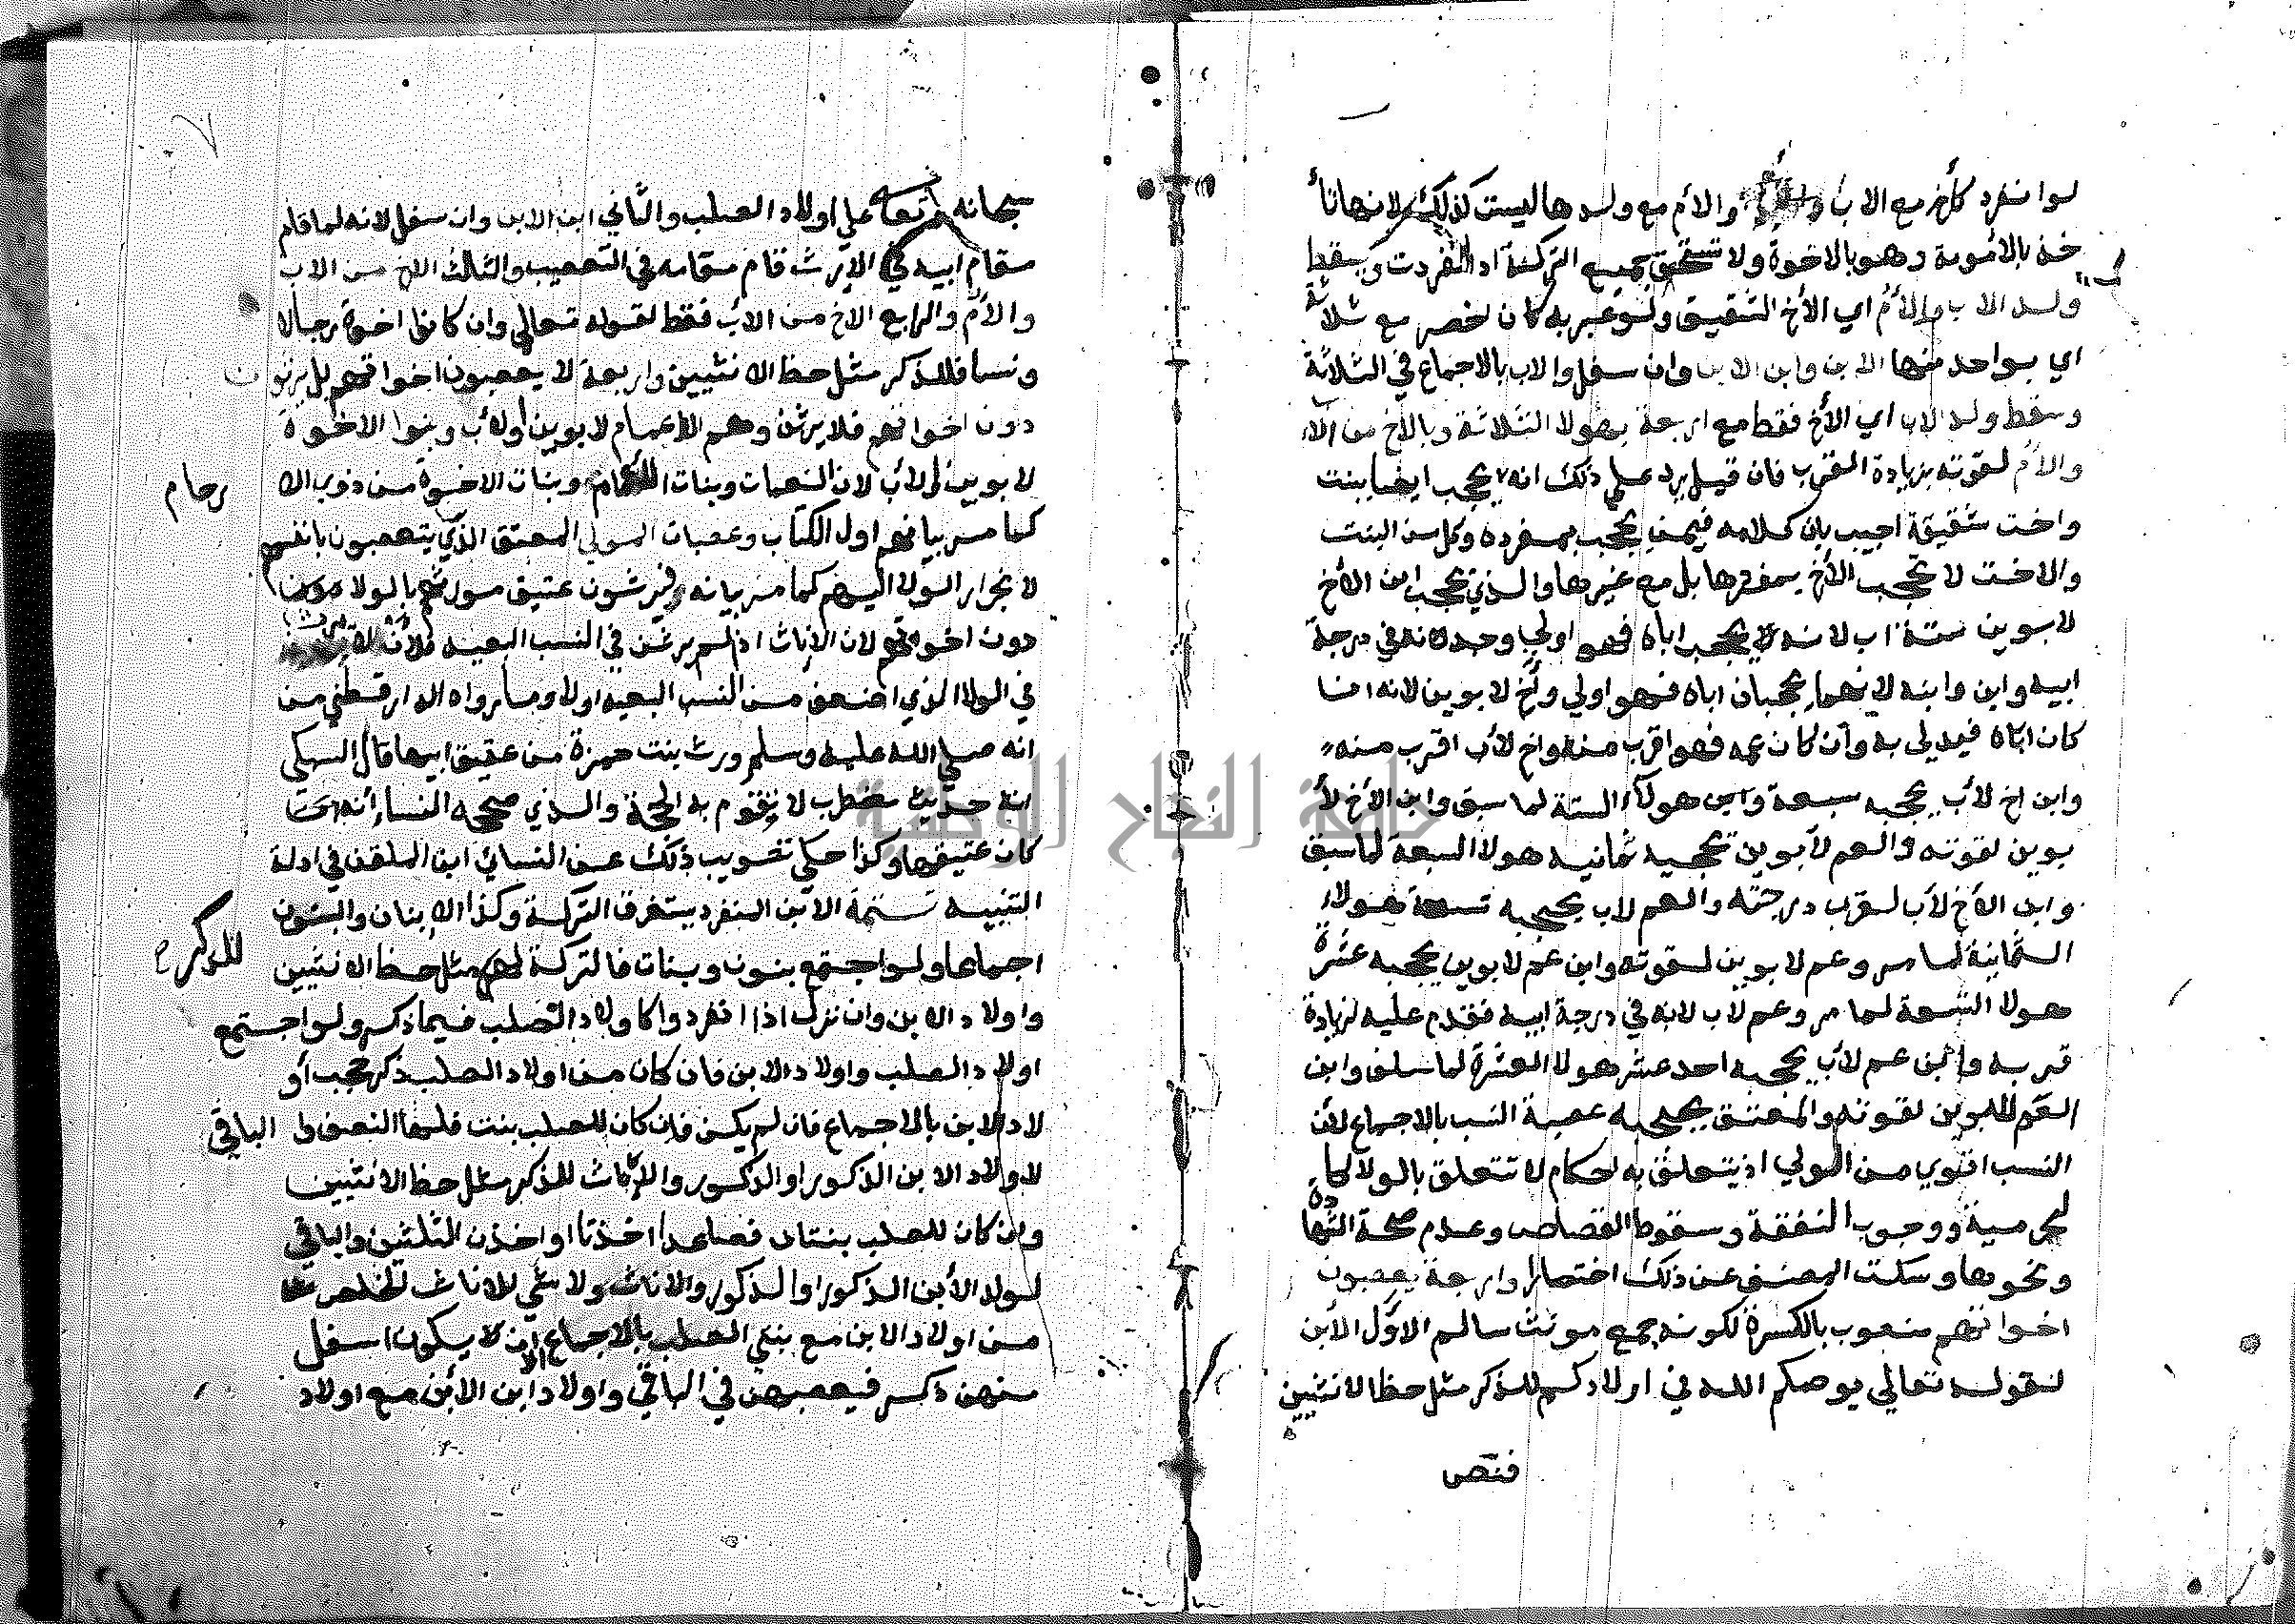 لو انفرد كأخ مع الاب والام مع ولدها ليست كذلك لانها تأ
خذ بالأمومة وهو بالاخوة ولا تستحق جميع التركة اذا انفردت ويسقط
ولد الاب والأم اي الأخ الشقيق ولو عبر به كان اخصر مع ثلاثة
اي بواحد منها الابن وابن الابن وان سفل والاب بالاجماع في الثلاثة
وسقط ولد الاب اي الأخ فقط مع اربعة بهولا الثلاثة وبالاخ من الاب
والأم لقوته بزيادة القرب فان قيل يرد علي ذلك انه يحجب ايضا ببنت
واخت شقيقة اجيب بان كلامه فيمن يحجب بمفرده وكل من البنت
والاخت لا تحجب الأخ بمفردها بل مع غيرها والذي يحجب ابن الأخ
لابوين ستة اب لانه يحجب اباه فهو اولي وجد لانه في درجة
ابيه وابن وابنه لانهما يحجبان اباه فهو اولي وأخ لابوين لانه ان
كان اباه فيدلي به وان كان عمه فهو اقرب منه واخ لأب اقرب منه
وابن اخ لأب يحجبه سبعة وابن هولاء الستة لما سبق وابن الأخ لأ
بوين لقوته والعم لأبوين تحجبه ثمانية هولا السبعة لما سبق
وابن الأخ لأب لقرب درجته والعم لاب يحجبه تسعة هولاء
الثمانية لما مر وعم لابوين لقوته وابن عم لابوين يحجبه عشرة
هولا التسعة لما مر وعم لاب لانه في درجة ابيه فقدم عليه لزيادة
قربه وابن عم لأب يحجبه احد عشر هولا العشرة لما سلف وابن
العم للابوين لقوته والمعتق يحجبه عصبة النسب بالاجماع لان
النسب اقوي من الولي اذ يتعلق به احكام لا تتعلق بالولا كا
لمحرمية ووجوب النفقة وسقوط القصاص وعدم صحة الشهادة
ونحوها وسكت المصنف عن ذلك اختصارا واربعة يعصبون
اخواتهم منصوب بالكسرة لكونه جمع مونث سالم الاول الأبن
لقوله تعالي يوصكم الله في اولادكم للذكر مثل حظ الانثيين
فنص
سبحانه وتعالى علي اولاد الصلب والثاني ابن الابن وان سفل لانه لما قام
مقام ابيه في الإرث قام مقامه في التعصيب والثالث الاخ من الاب
والأم والرابع الاخ من الاب فقط لقوله تعالي وان كانوا اخوة رجالا
ونسا فللذكر مثل حظ الانثيين واربعة لا يعصبون اخواتهم بل يرثون
دون اخواتهم فلا يرثن وهم الأعمام لابوين أولأب وبنوا الاخوة
لابوين او لأب لان العمات وبنات الاعمام وبنات الاخوة من ذوي الا رحام
كما مر بيانهم اول الكتاب وعصبات المولي المعتق الذي يتعصبون بانفسهم
لانجرار الولا اليهم كما مر بيانه فيرثون عتيق مورثهم بالولا
دون اخواتهم لان الاناث اذ لم يرثن في النسب البعيد فلأن لا يرثن
في الولا الذي اضعف من النسب البعيد اولا وما رواه الدارقطني من
انه صلي الله عليه وسلم ورث بنت حمزة من عتيق ابيها قال السبكي
انه حديث مضطرب لا يقوم به الحجة والذي صححه النساء أنه
كان عتيقها وكذا حكي تصويب ذلك عن النسائ ابن الملقن في ادلة
التنبيه تتمة الابن المنفرد يستغرق التركة وكذا الابنان والبنون
اجماعا ولو اجتمع بنون وبنات فالتركة لهم للذكر مثل حظ الانثيين
واولاد الابن وان نزل اذا انفردوا كاولاد الصلب فيما ذكر ولو اجتمع
اولاد الصلب واولاد الابن فان كان من اولاد الصلب ذكر حجب أو
لاد الابن بالاجماع فان لم يكن فان كان للصلب بنت فلها النصف و الباقي
لاولاد الابن الذكور او الذكور والاناث للذكر مثل حظ الانثيين
وان كان للصلب بنتان فصاعدا اخذتا او اخذن الثلثين والباقي
لولد الأبن الذكور او الذكور والاناث ولا شي للاناث الخلص
من اولاد الابن مع بنتي الصلب بالاجماع الا ان يكون اسفل
منهن ذكر فيعصبهن في الباقي واولاد ابن الأبن مع اولاد